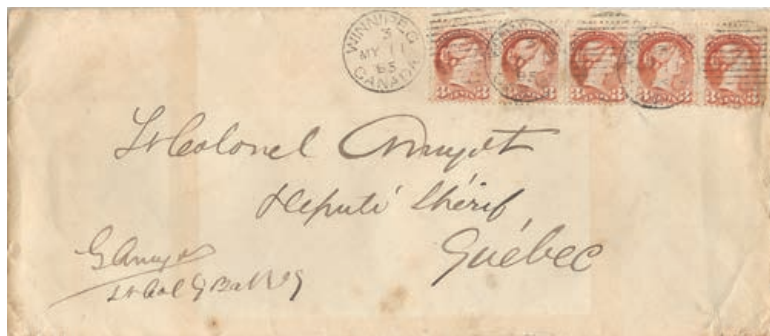 WINNIPEG
3
MY 11
85
CANADA
Lt Colonel Amyot
Deputé Shérif,
Québec
G Amyot
Lt Col 9 Bat